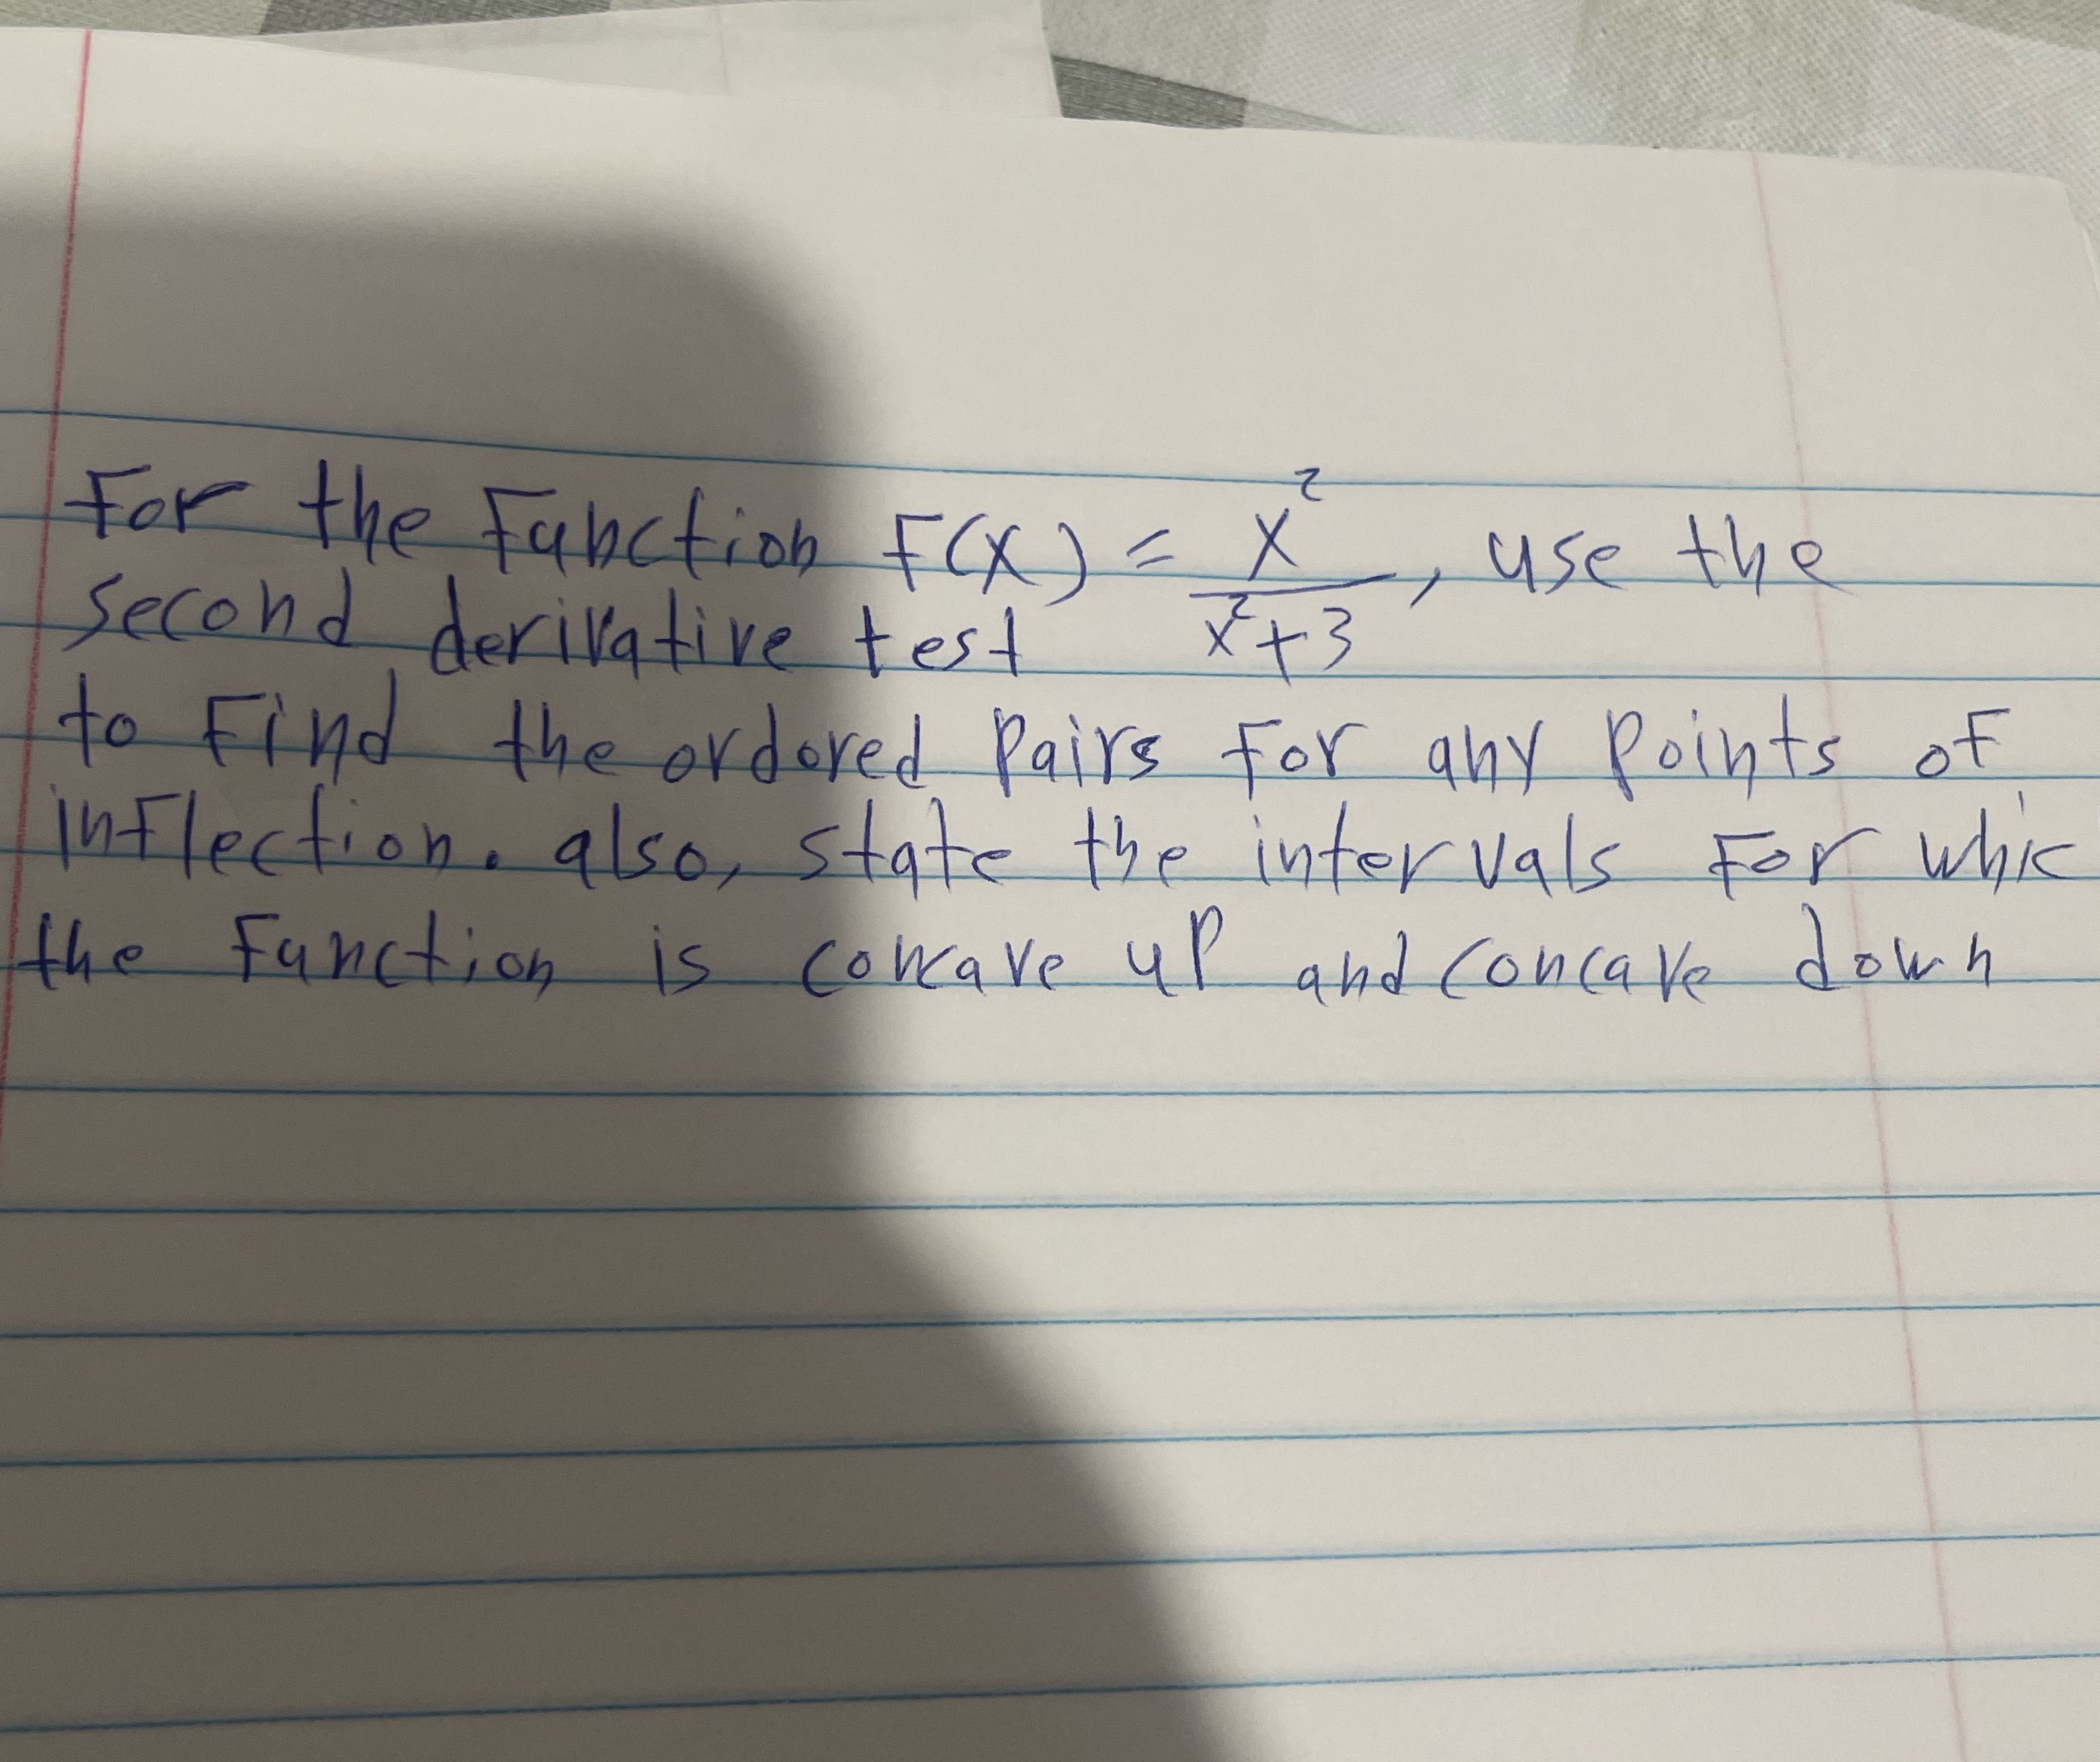 For the Function F(x) = x²/(x²+3), use the
second derivative test
to Find the ordored Pairs For any Points of
inflection. also, state the intervals For whic
the Function is concave up and concave down